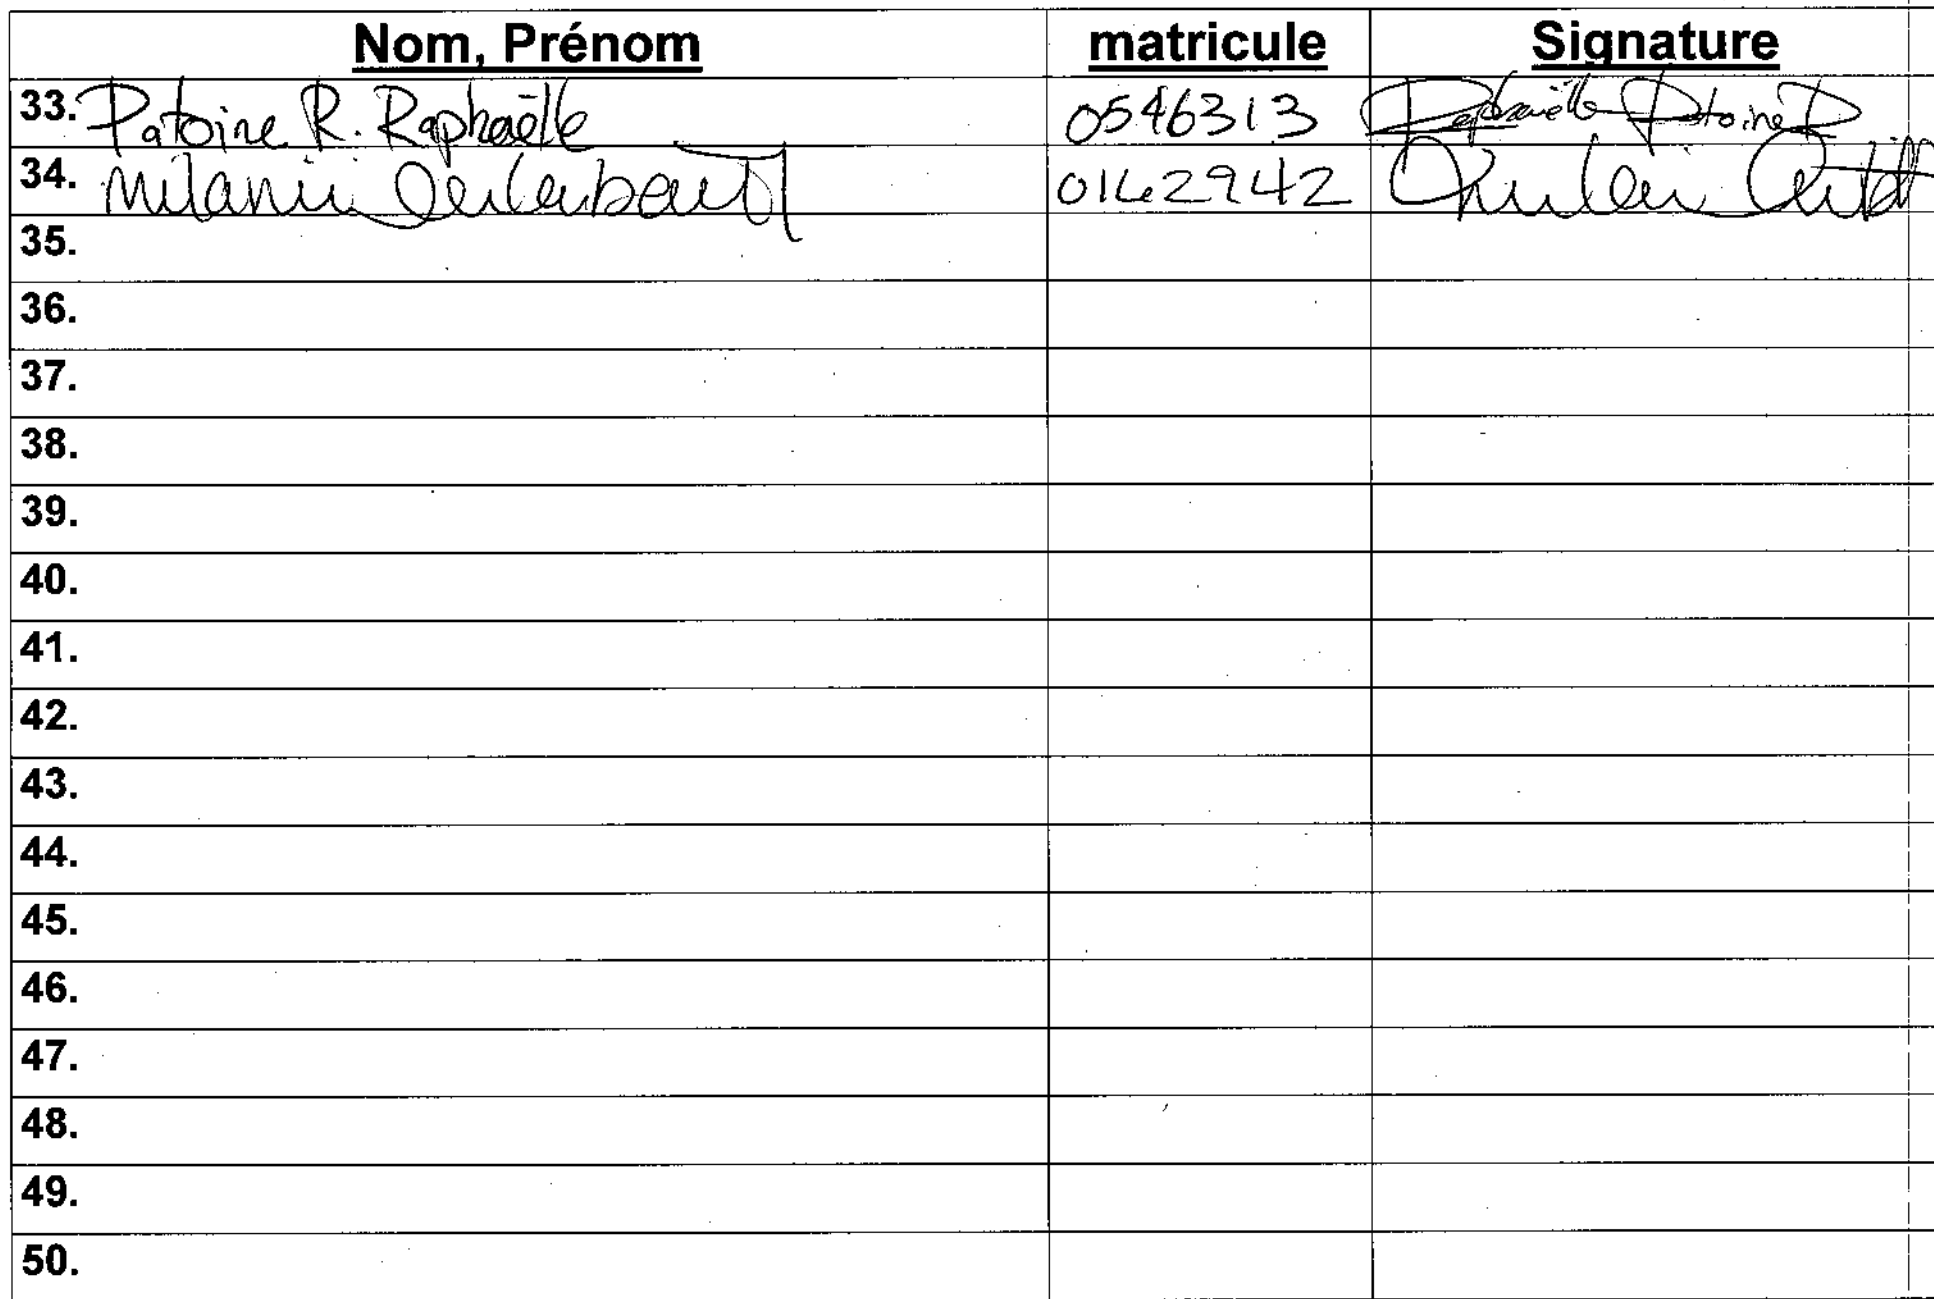 Nom, Prénom matricule Signature
33. Patoine R. Raphaëlle 0546313 Raphaëlle Patoine R
34. 0162942
35.
36.
37.
38.
39.
40.
41.
42.
43.
44.
45.
46.
47.
48.
49.
50.